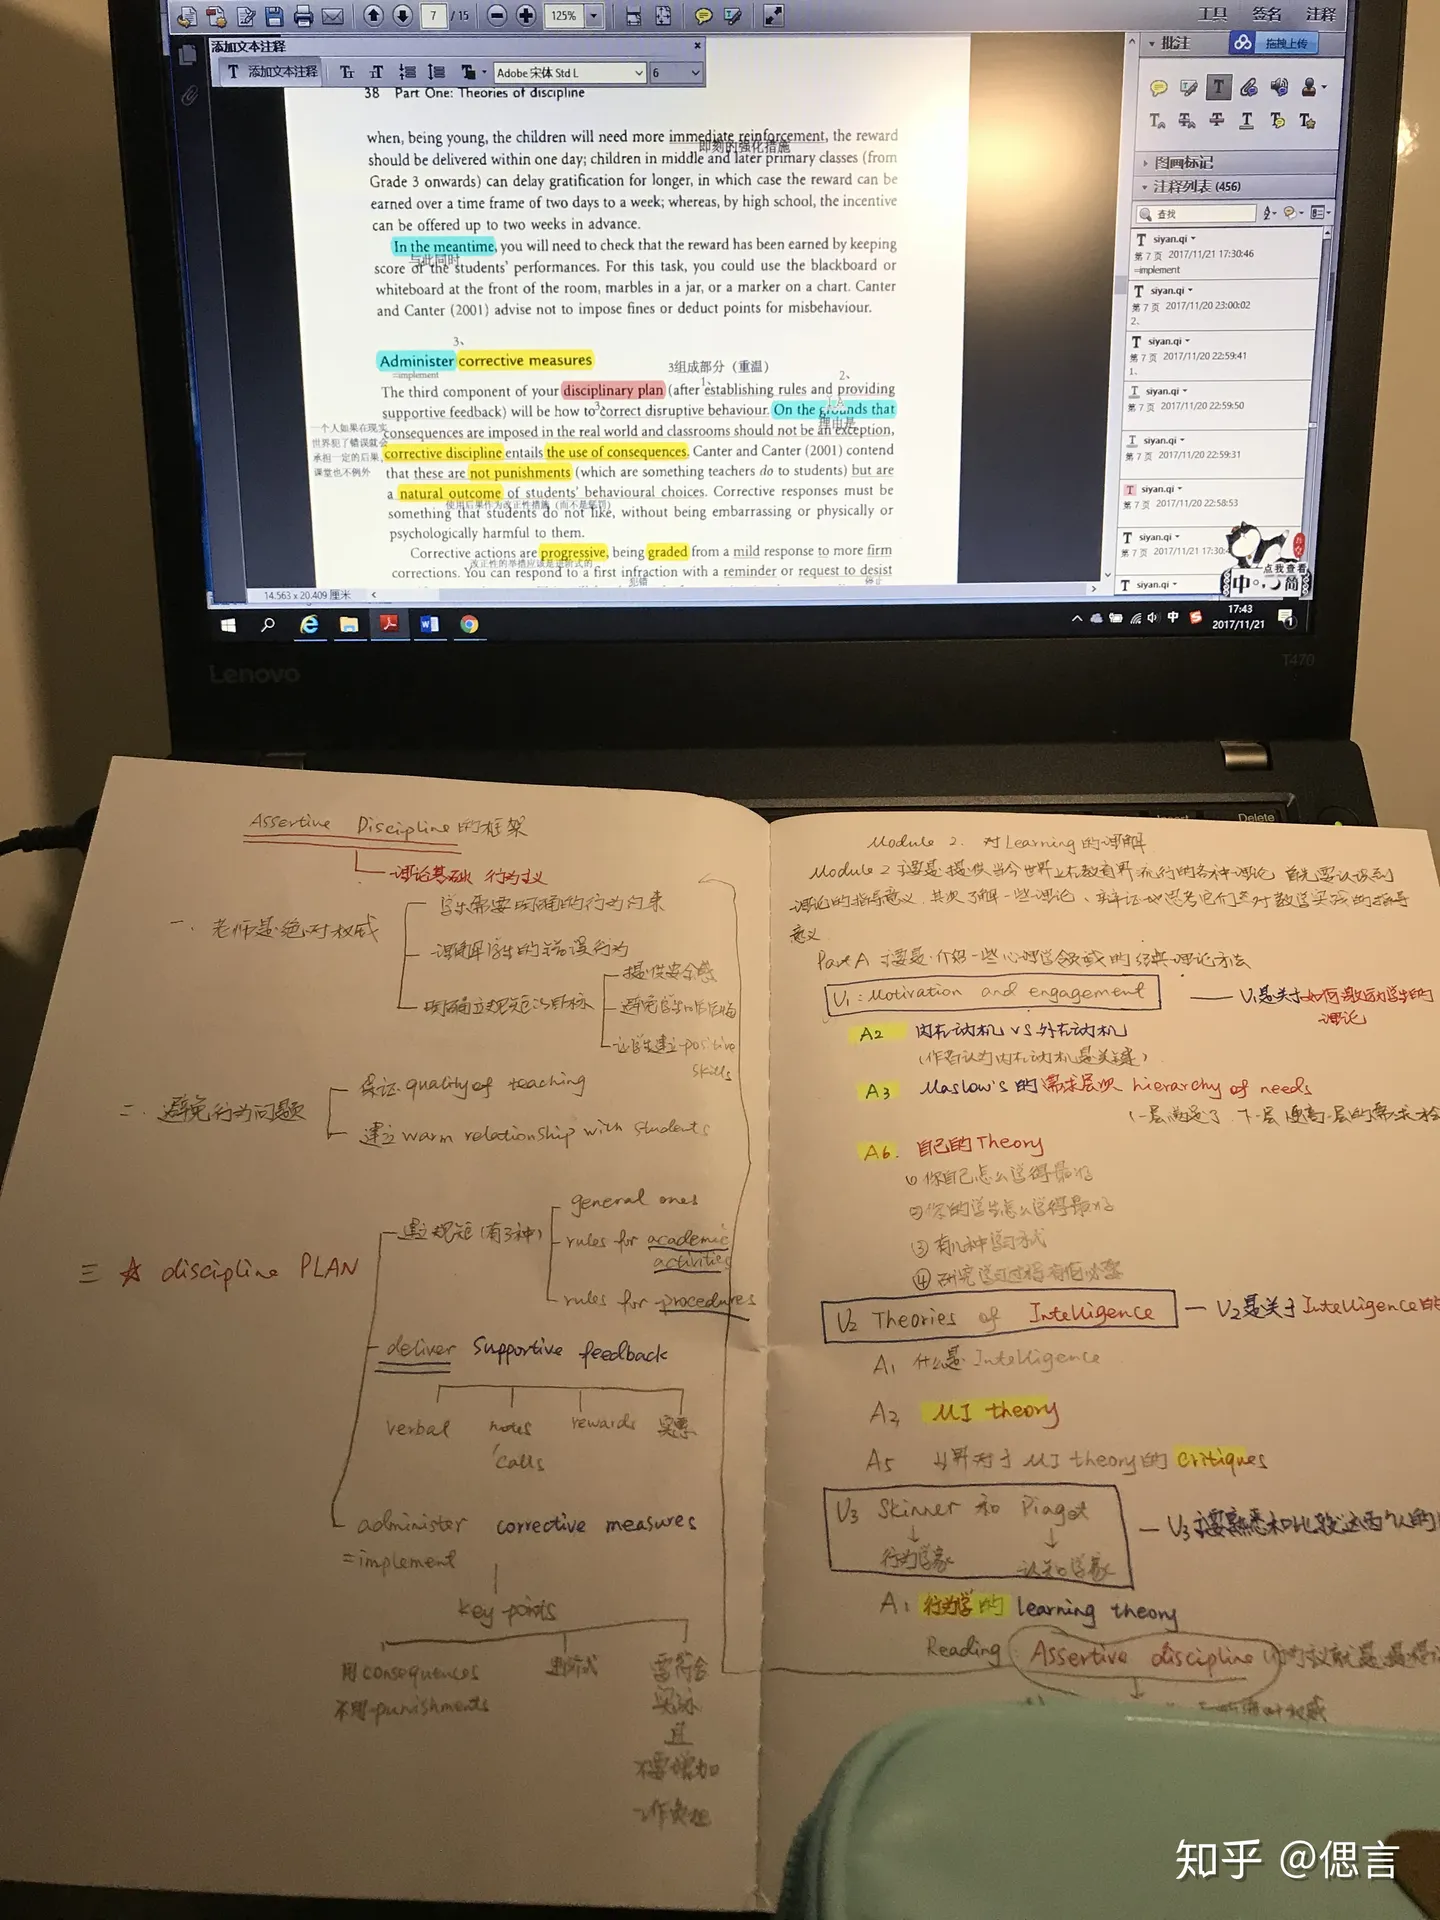 7 / 15
125%
工具 签名 注释
添加文本注释
添加文本注释
Adobe 宋体 Std L
6
38 Part One: Theories of discipline
when, being young, the children will need more immediate reinforcement, the reward
即刻的强化措施
should be delivered within one day; children in middle and later primary classes (from
Grade 3 onwards) can delay gratification for longer, in which case the reward can be
earned over a time frame of two days to a week; whereas, by high school, the incentive
can be offered up to two weeks in advance.
In the meantime, you will need to check that the reward has been earned by keeping
与此同时
score of the students' performances. For this task, you could use the blackboard or
whiteboard at the front of the room, marbles in a jar, or a marker on a chart. Canter
and Canter (2001) advise not to impose fines or deduct points for misbehaviour.
3、
Administer corrective measures
=implement
3组成部分（重温）
1、
2、
The third component of your disciplinary plan (after establishing rules and providing
supportive feedback) will be how to correct disruptive behaviour. On the grounds that
3
理由是
consequences are imposed in the real world and classrooms should not be an exception,
corrective discipline entails the use of consequences. Canter and Canter (2001) contend
that these are not punishments (which are something teachers do to students) but are
a natural outcome of students' behavioural choices. Corrective responses must be
使用后果作为改正性措施（而不是惩罚）
something that students do not like, without being embarrassing or physically or
psychologically harmful to them.
一个人如果在现实
世界犯了错误就会
承担一定的后果，
课堂也不例外
Corrective actions are progressive, being graded from a mild response to more firm
改正性的举措应该是进阶式的
corrections. You can respond to a first infraction with a reminder or request to desist
犯错
停止
14.563 x 20.409 厘米
批注
拖拽上传
图画标记
注释列表 (456)
查找
siyan.qi
第 7 页 2017/11/21 17:30:46
=implement
siyan.qi
第 7 页 2017/11/20 23:00:02
2、
siyan.qi
第 7 页 2017/11/20 22:59:41
1、
siyan.qi
第 7 页 2017/11/20 22:59:50
siyan.qi
第 7 页 2017/11/20 22:59:31
siyan.qi
第 7 页 2017/11/20 22:58:53
siyan.qi
第 7 页 2017/11/21 17:30:4
siyan.qi
点我查看
中 简
中
17:43
2017/11/21
Lenovo
T470
Delete
Assertive Discipline的框架
理论基础 行为主义
一、老师是绝对权威
学生需要明确的行为约束
理解学生的错误行为
明确立规矩的目标
提供安全感
让学生建立positive
skills
二、避免行为问题
保证quality of teaching
建立warm relationship with students
三 ☆ discipline PLAN
建立规矩(有3种)
general ones
rules for academic
activities
rules for procedures
deliver supportive feedback
verbal
notes
/calls
rewards
实惠
administer corrective measures
=implement
key points
用consequences
不用punishments
进阶式
需符合
实际
且
不需增加
工作负担
Module 2. 对Learning的理解
Module 2 主要是提供当今世界上教育界流行的各种理论 首先要认识到
理论的指导意义，其次了解一些理论、辩证地思考它们对教学实践的指导
意义.
Part A 主要是介绍一些心理学领域的经典理论方法
U1: Motivation and engagement
U1是关于如何激励学生的
理论
A2 内在动机 vs 外在动机
(作者认为内在动机是关键)
A3 Maslow's 的需求层次 hierarchy of needs
A6. 自己的Theory
① 你自己怎么学得最好
② 你的学生怎么学得最好
③ 有几种学习方式
④ 研究学习过程有何必要
U2 Theories of Intelligence
U2是关于Intelligence的
A1 什么是Intelligence
A2 MI theory
A5 业界对于MI theory的critiques
U3 Skinner 和 Piaget
行为学家
认知学家
U3主要熟悉和比较这两个人的
A1 行为学的 learning theory
Reading Assertive discipline
知乎 @偲言